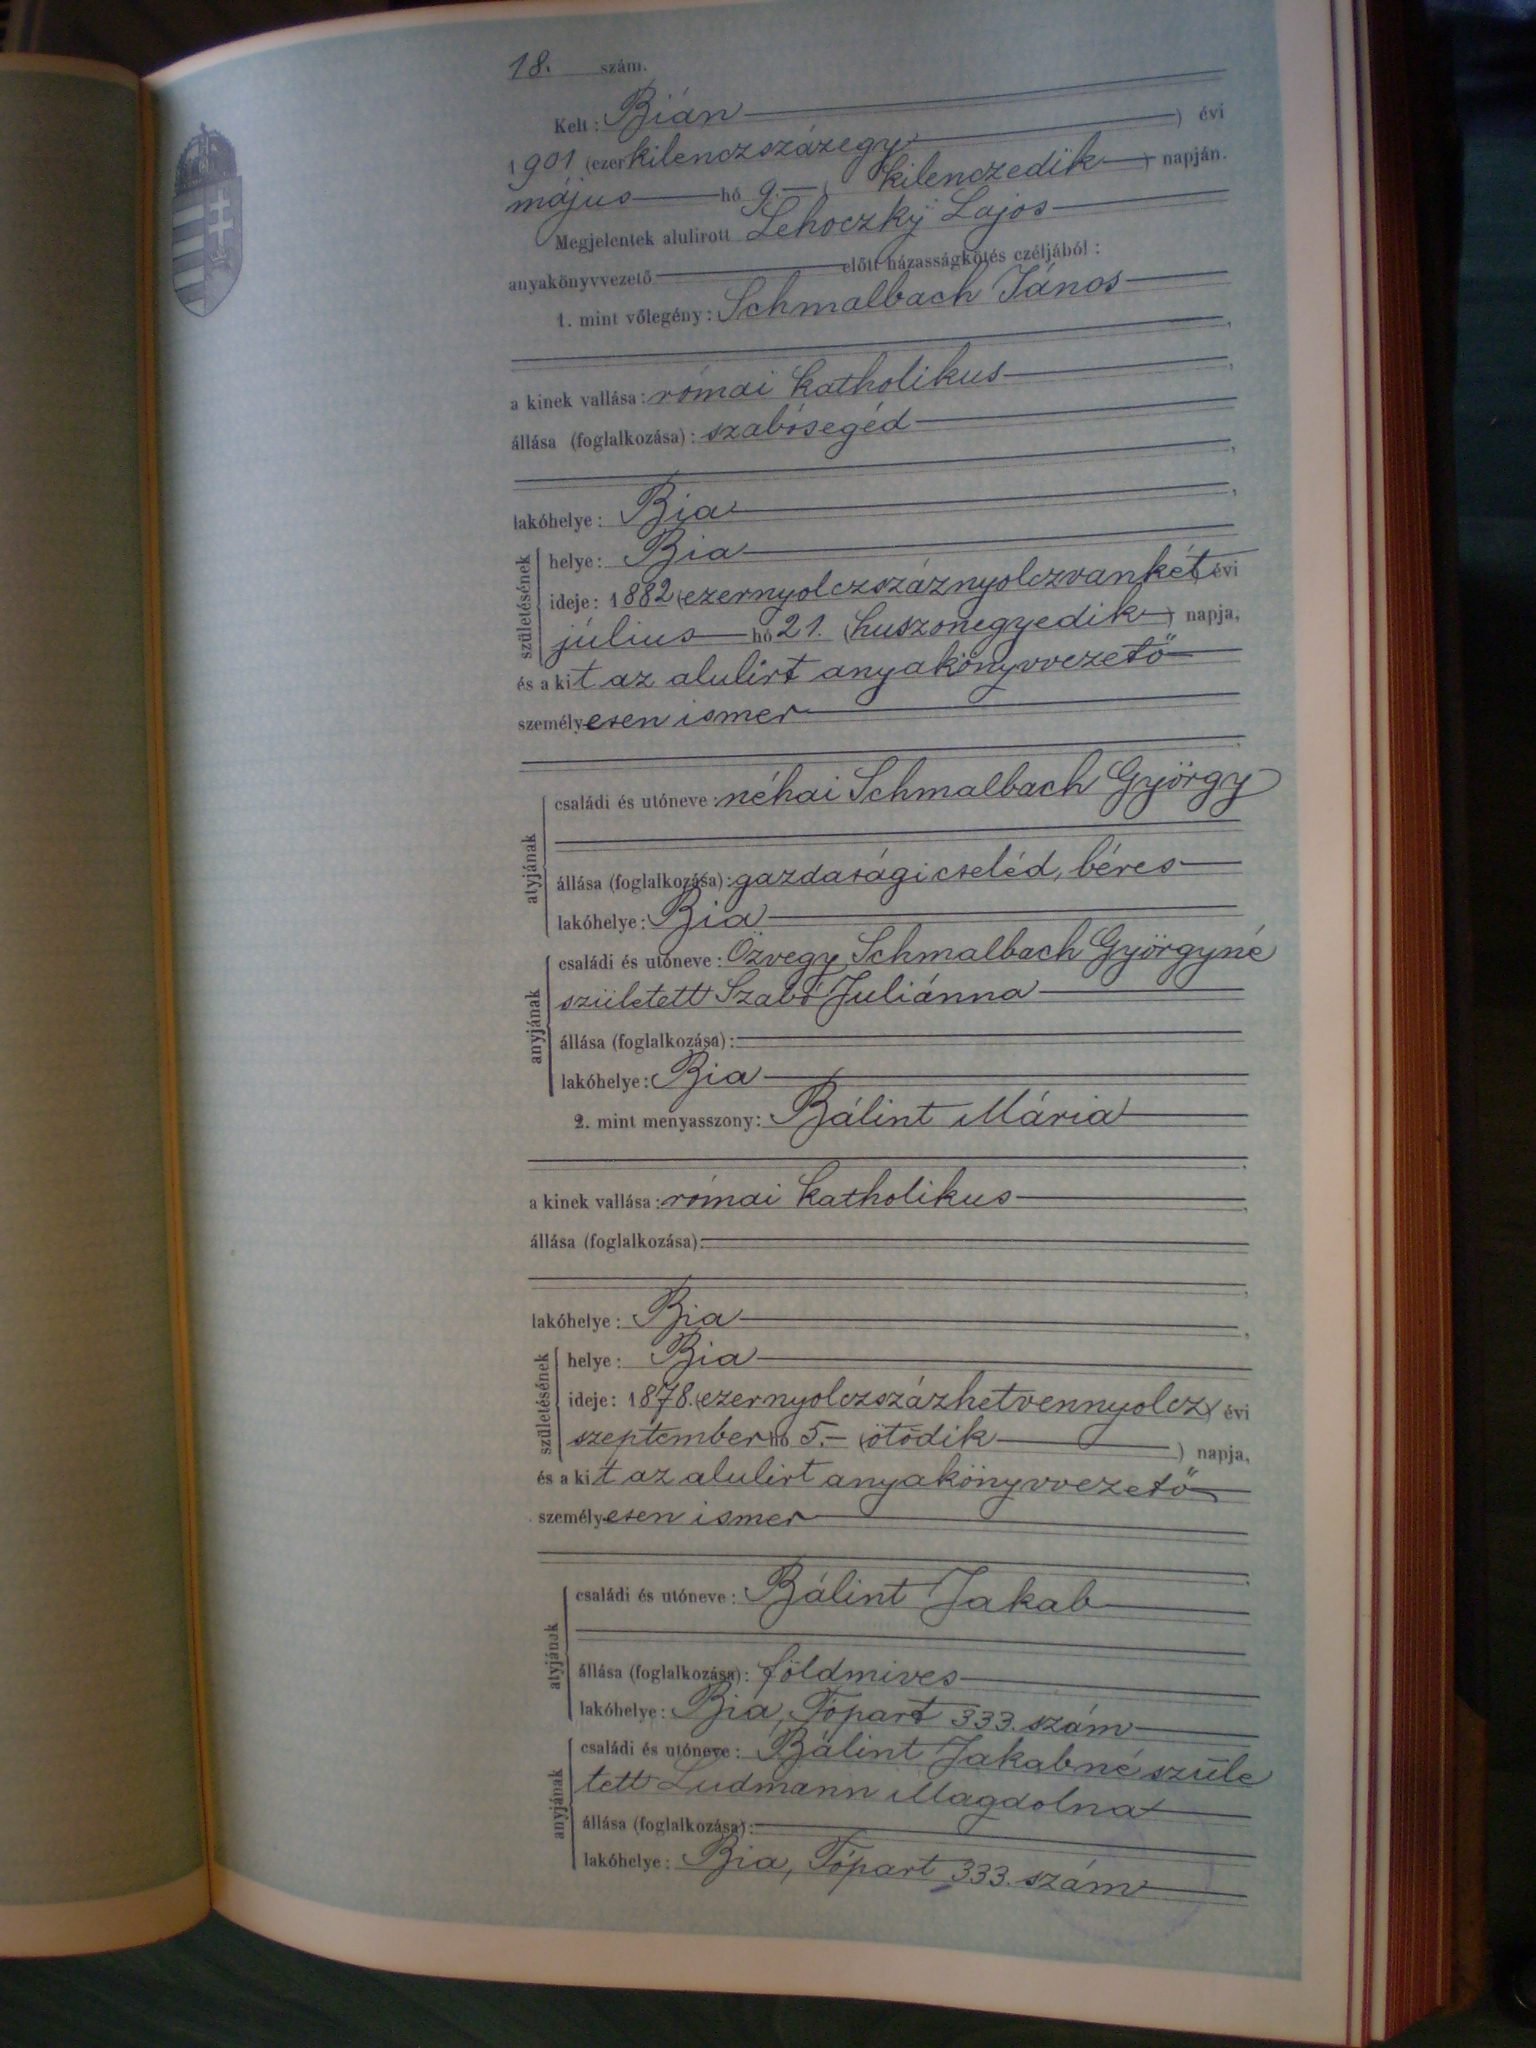 18. szám.
Kelt: Bián
1901 (ezerkilenczszázegy) évi
május hó 9. (kilenczedik) napján.
Megjelentek alulirott Lehoczky Lajos
anyakönyvvezető előtt házasságkötés czéljából:
1. mint vőlegény: Schmalbach János
a kinek vallása: római katholikus
állása (foglalkozása): szabósegéd
lakóhelye: Bia
születésének
helye: Bia
ideje: 1882 (ezernyolczszáznyolczvankét) évi
július hó 21. (huszonegyedik) napja,
és a kit az alulirt anyakönyvvezető
személyesen ismer
atyjának
családi és utóneve: néhai Schmalbach György
állása (foglalkozása): gazdasági cseléd, béres
lakóhelye: Bia
anyjának
családi és utóneve: Özvegy Schmalbach Györgyné
született Szabó Juliánna
állása (foglalkozása):
lakóhelye: Bia
2. mint menyasszony: Bálint Mária
a kinek vallása: római katholikus
állása (foglalkozása):
lakóhelye: Bia
születésének
helye: Bia
ideje: 1878. (ezernyolczszázhetvennyolcz) évi
szeptember hó 5. (ötödik) napja,
és a kit az alulirt anyakönyvvezető
személyesen ismer
atyjának
családi és utóneve: Bálint Jakab
állása (foglalkozása): földmives
lakóhelye: Bia, Tópart 333. szám
anyjának
családi és utóneve: Bálint Jakabné szüle
tett Ludmann Magdolna
állása (foglalkozása):
lakóhelye: Bia, Tópart 333. szám